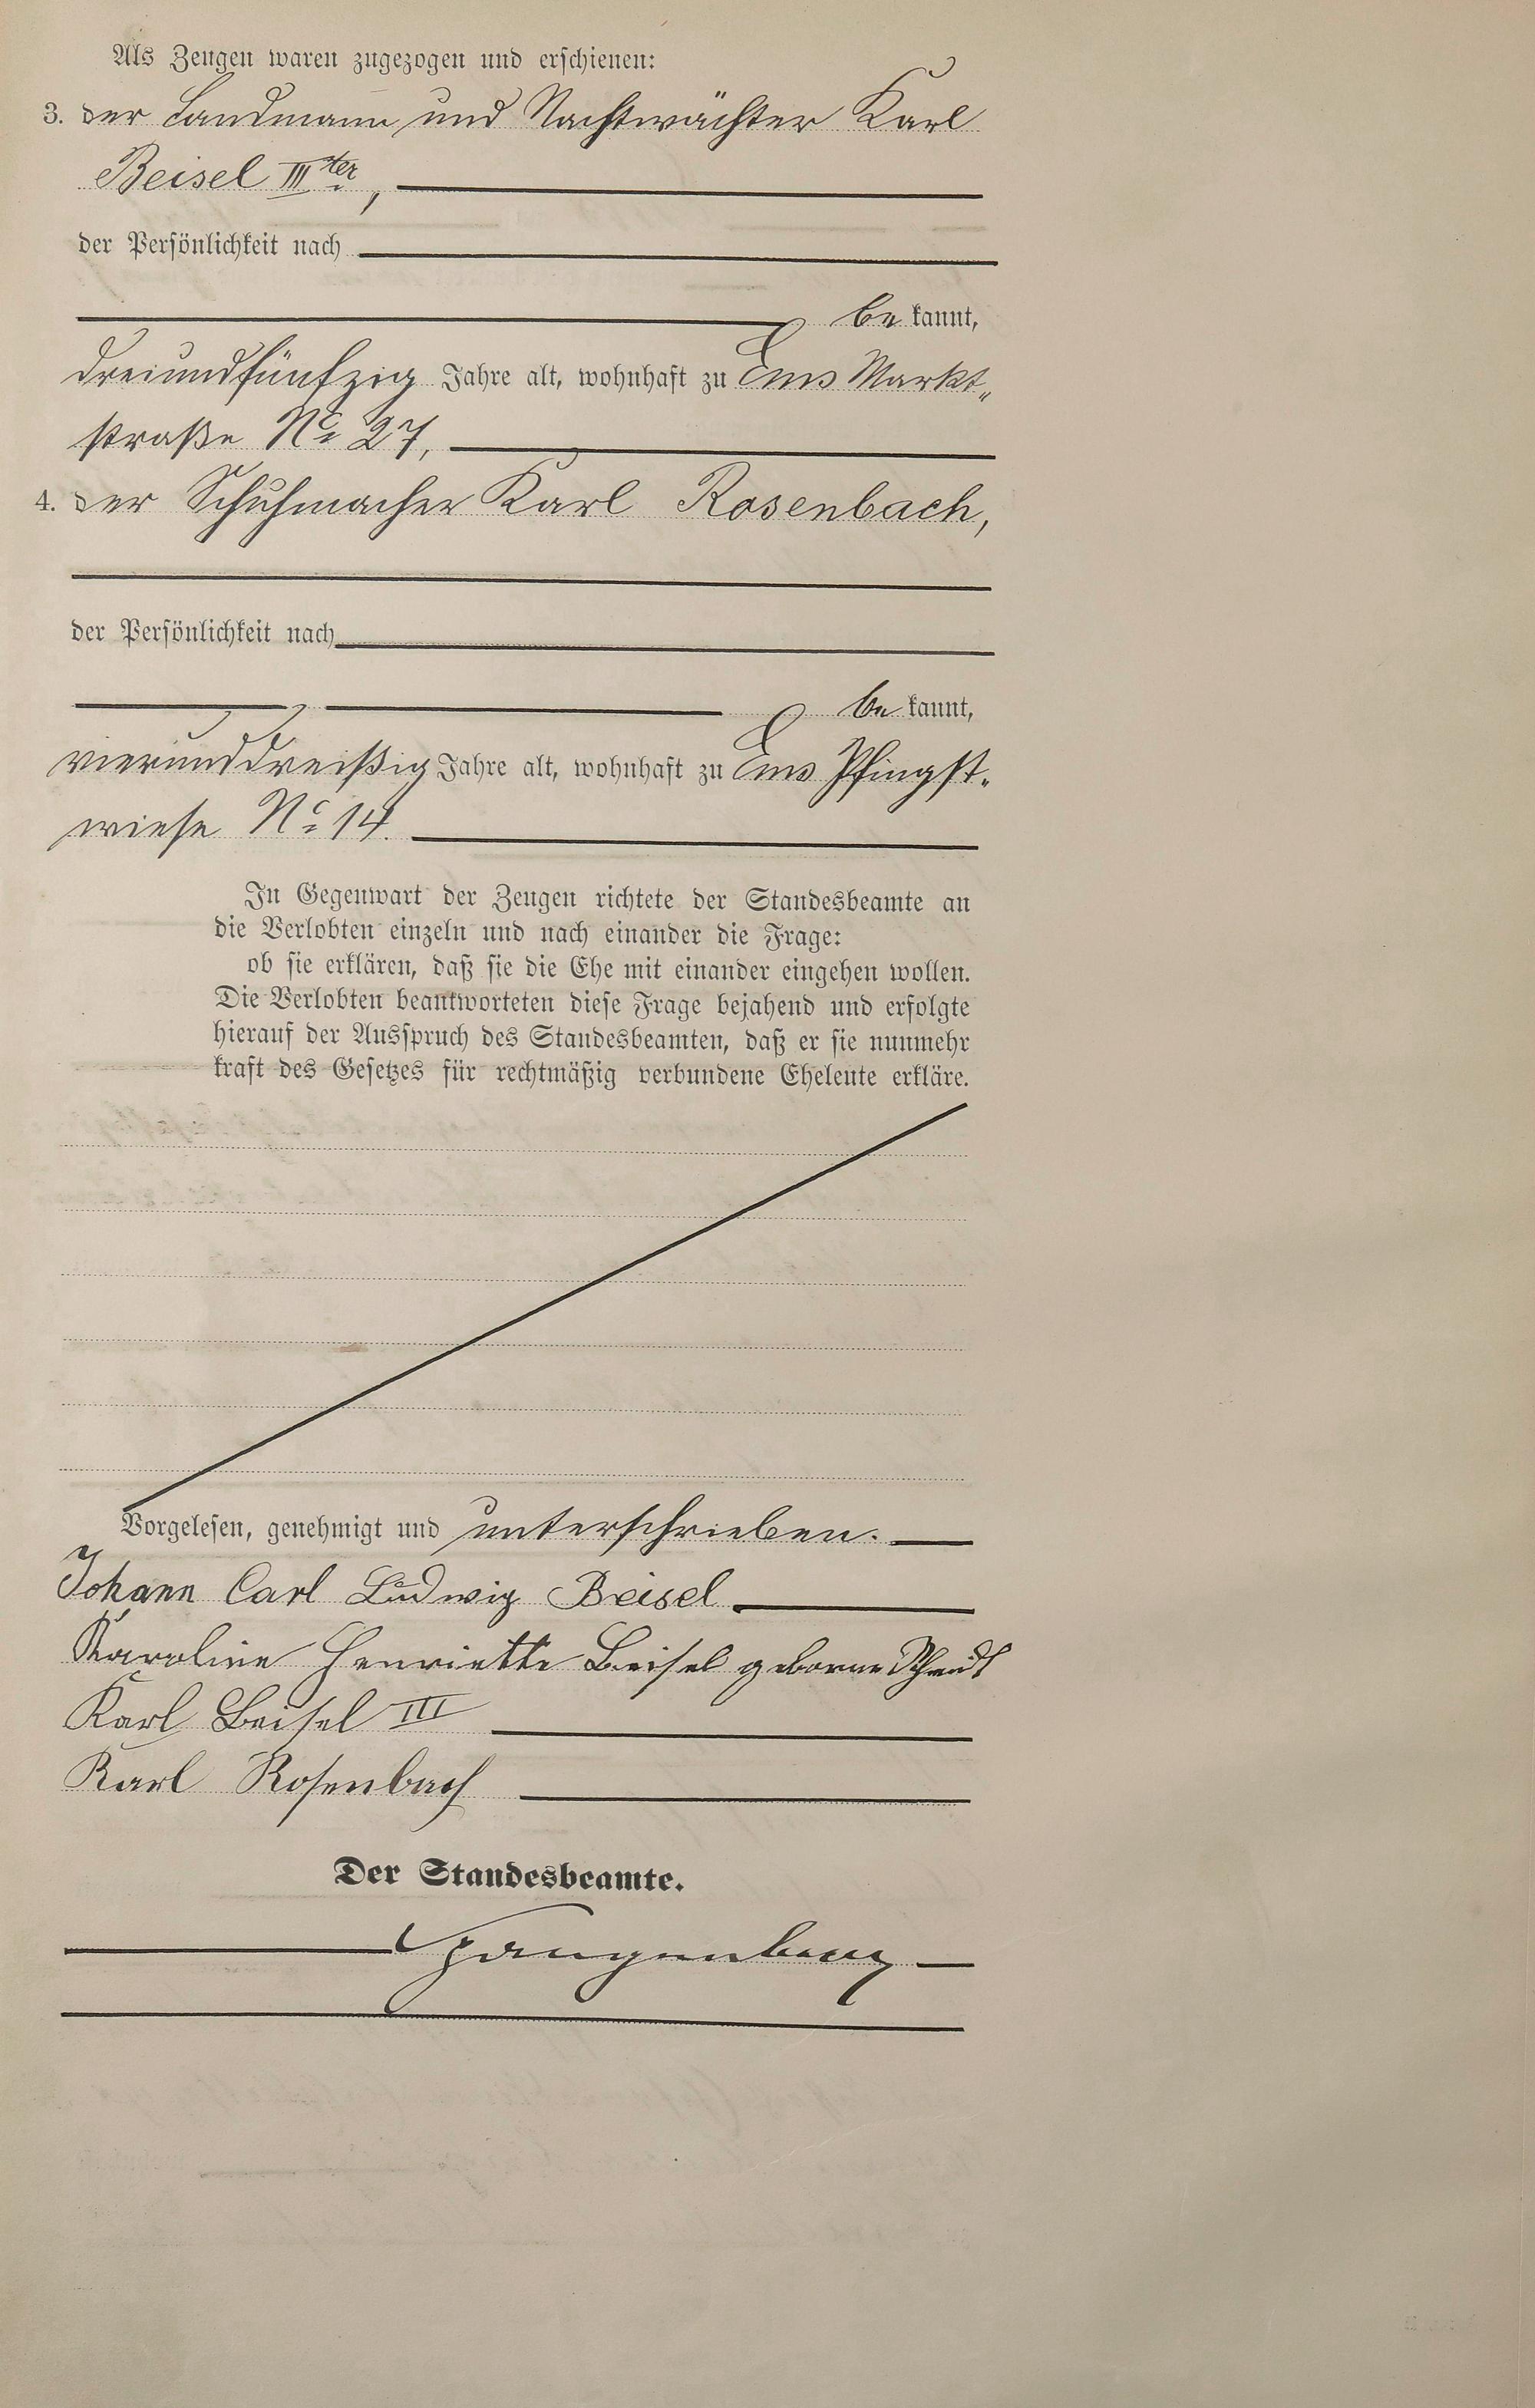 Als Zeugen waren zugezogen und erschienen:
3. der Landmann und Nachtwächter Karl
Beisel III ter,
der Persönlichkeit nach
be kannt,
dreiundfünfzig Jahre alt, wohnhaft zu Ems Markt„
straße No 27,
4. der Schuhmacher Karl Rosenbach,
der Persönlichkeit nach
be kannt,
vierunddreißig Jahre alt, wohnhaft zu Ems Pfingst„
wiese No 14.
In Gegenwart der Zeugen richtete der Standesbeamte an
die Verlobten einzeln und nach einander die Frage:
ob sie erklären, daß sie die Ehe mit einander eingehen wollen.
Die Verlobten beantworteten diese Frage bejahend und erfolgte
hierauf der Ausspruch des Standesbeamten, daß er sie nunmehr
kraft des Gesetzes für rechtmäßig verbundene Eheleute erkläre.
Vorgelesen, genehmigt und unterschrieben.
Johann Carl Ludwig Beisel
Karoline Henriette Beisel geborne
Karl Beisel III
Karl Rosenbach
Der Standesbeamte.
Spangenberg